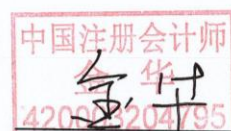 中国注册会计师
金华
420003204795